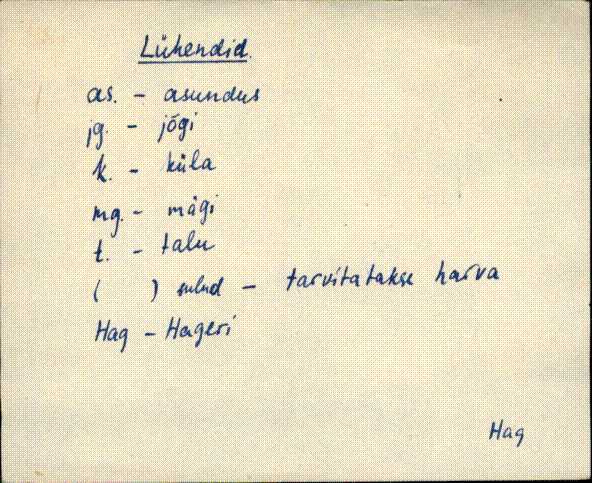 Lühendid.
as. - asundus
jg. - jõgi
k. - küla
mg. - mägi
t. - talu
( ) sulud - tarvitatakse harva
Hag - Hageri
Hag